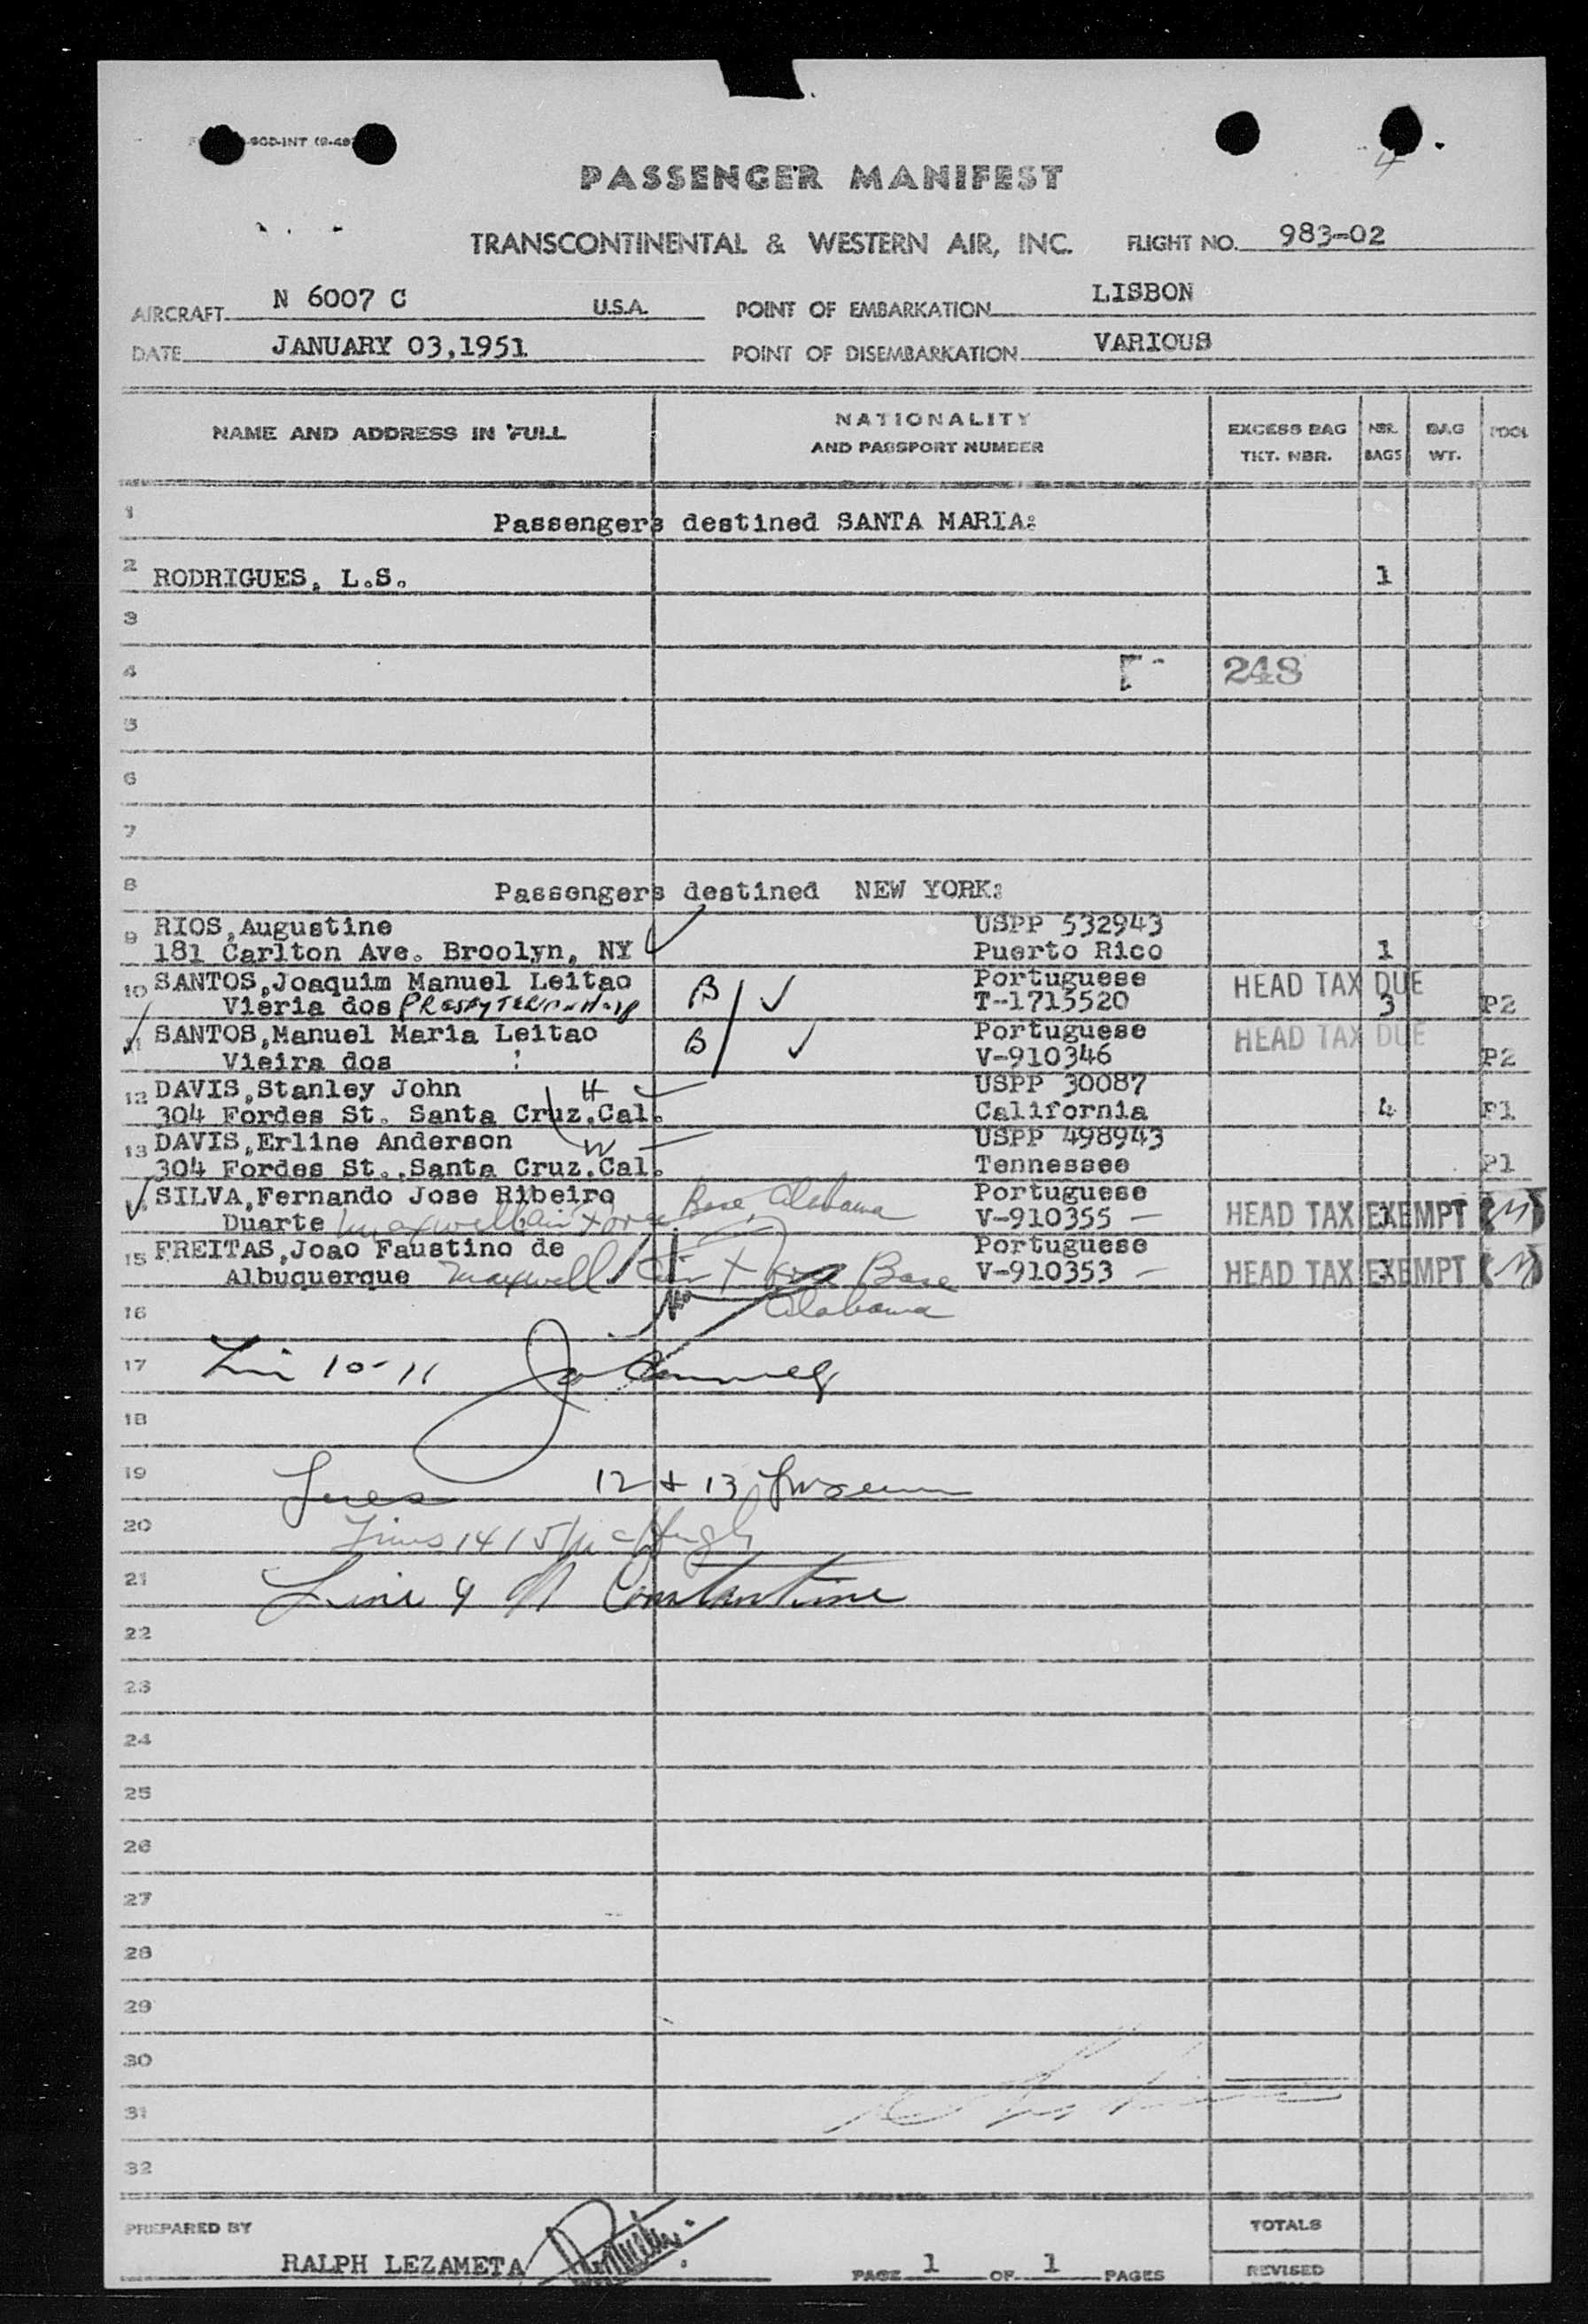 SOD-INT (9-48)
4
PASSENGER MANIFEST
TRANSCONTINENTAL & WESTERN AIR, INC. FLIGHT NO. 983-02
AIRCRAFT N 6007 C U.S.A. POINT OF EMBARKATION LISBON
DATE JANUARY 03,1951 POINT OF DISEMBARKATION VARIOUS
NAME AND ADDRESS IN FULL NATIONALITY AND PASSPORT NUMBER EXCESS BAG TKT. NBR. NBR. BAGS BAG WT. POOL
1 Passengers destined SANTA MARIA:
2 RODRIGUES, L.S. 1
3
4 248
5
6
7
8 Passengers destined NEW YORK:
9 RIOS,Augustine USPP 532943
181 Carlton Ave. Broolyn, NY Puerto Rico 1
10 SANTOS,Joaquim Manuel Leitao B Portuguese HEAD TAX DUE
Vieria dos PRESbyTERIAN Hosp T-1715520 3 P2
11 SANTOS,Manuel Maria Leitao B Portuguese HEAD TAX DUE
Vieira dos V-910346 P2
12 DAVIS,Stanley John H USPP 30087
304 Fordes St. Santa Cruz.Cal. California 4 P1
13 DAVIS,Erline Anderson W USPP 498943
304 Fordes St.,Santa Cruz.Cal. Tennessee P1
SILVA,Fernando Jose Ribeiro Portuguese
Duarte Maxwell air Force Base, Alabama V-910355 — HEAD TAX EXEMPT 1 (M)
15 FREITAS,Joao Faustino de Portuguese
Albuquerque Maxwell Air Force Base V-910353 — HEAD TAX EXEMPT (M)
16 Alabama
17 Lin 10-11
18
19 Lines 12 + 13
20 Lines 14 15
21 Line 9 Constantine
22
23
24
25
26
27
28
29
30
31
32
PREPARED BY RALPH LEZAMETA PAGE 1 OF 1 PAGES
TOTALS
REVISED